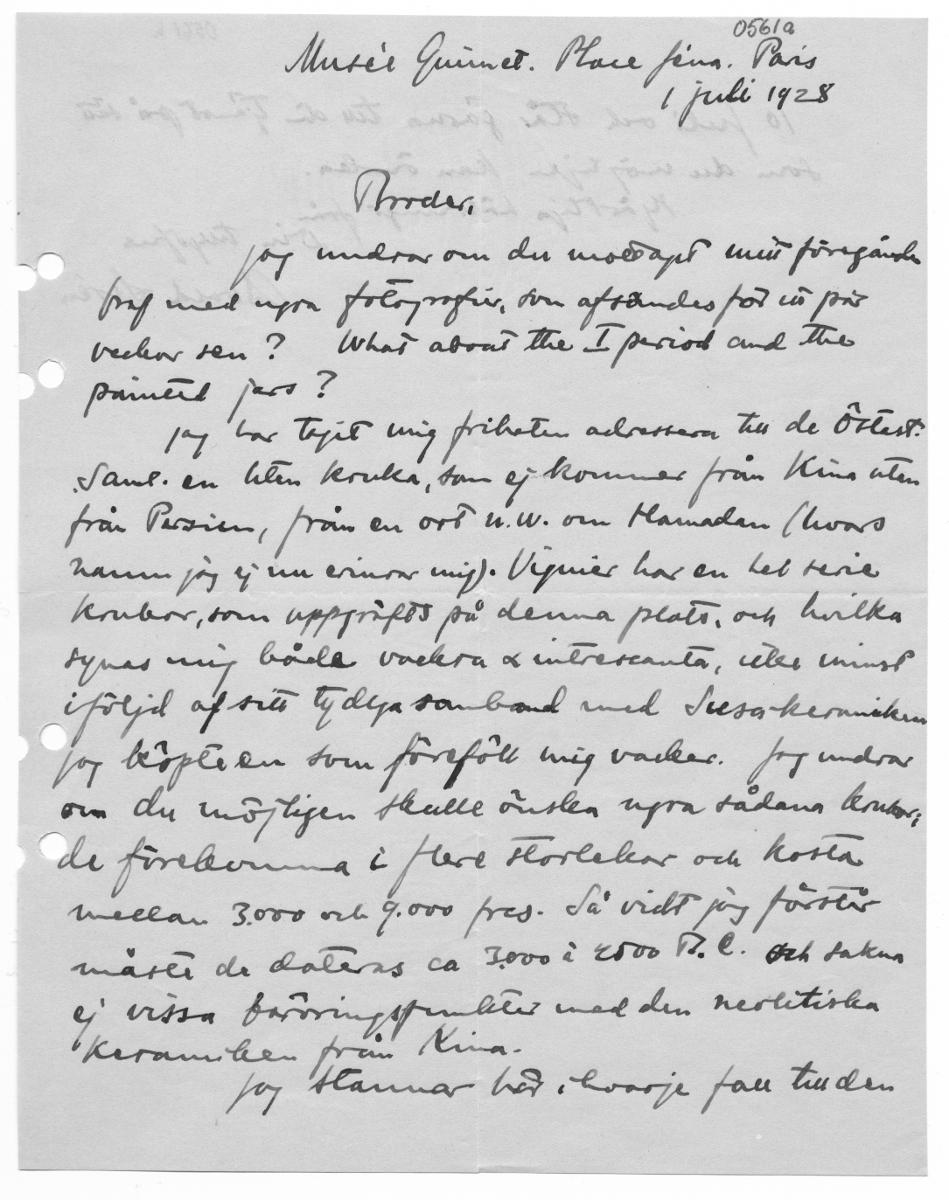 0561a
Musée Guimet. Place Jéna. Paris
1 juli 1928
Broder,
jag undrar om du mottagit mitt föregående
bref med ngra fotografier, som afsändes för ett par
veckor sen? What about the I period and the
painted jars?
Jag har tagit mig friheten adressera till de Östast.
Saml. en liten kruka, som ej kommer från Kina utan
från Persien, från en ort n.w. om Hamadan (hvars
namn jag ej nu erinrar mig). Vignier har en hel serie
krukor, som uppgräfts på denna plats, och hvilka
synas mig både vackra & intressanta, icke minst
i följd af sitt tydliga samband med Susa-keramiken
jag köpte en som föreföll mig vacker. Jag undrar
om du möjligen skulle önska ngra sådana krukor;
de förekomma i flere storlekar och kosta
mellan 3.000 och 9.000 frcs. Så vidt jag förstår
måste de dateras ca 3.000 à 2500 B.C. och sakna
ej vissa beröringspunkter med den neolitiska
keramiken från Kina.
Jag stannar här i hvarje fall till den